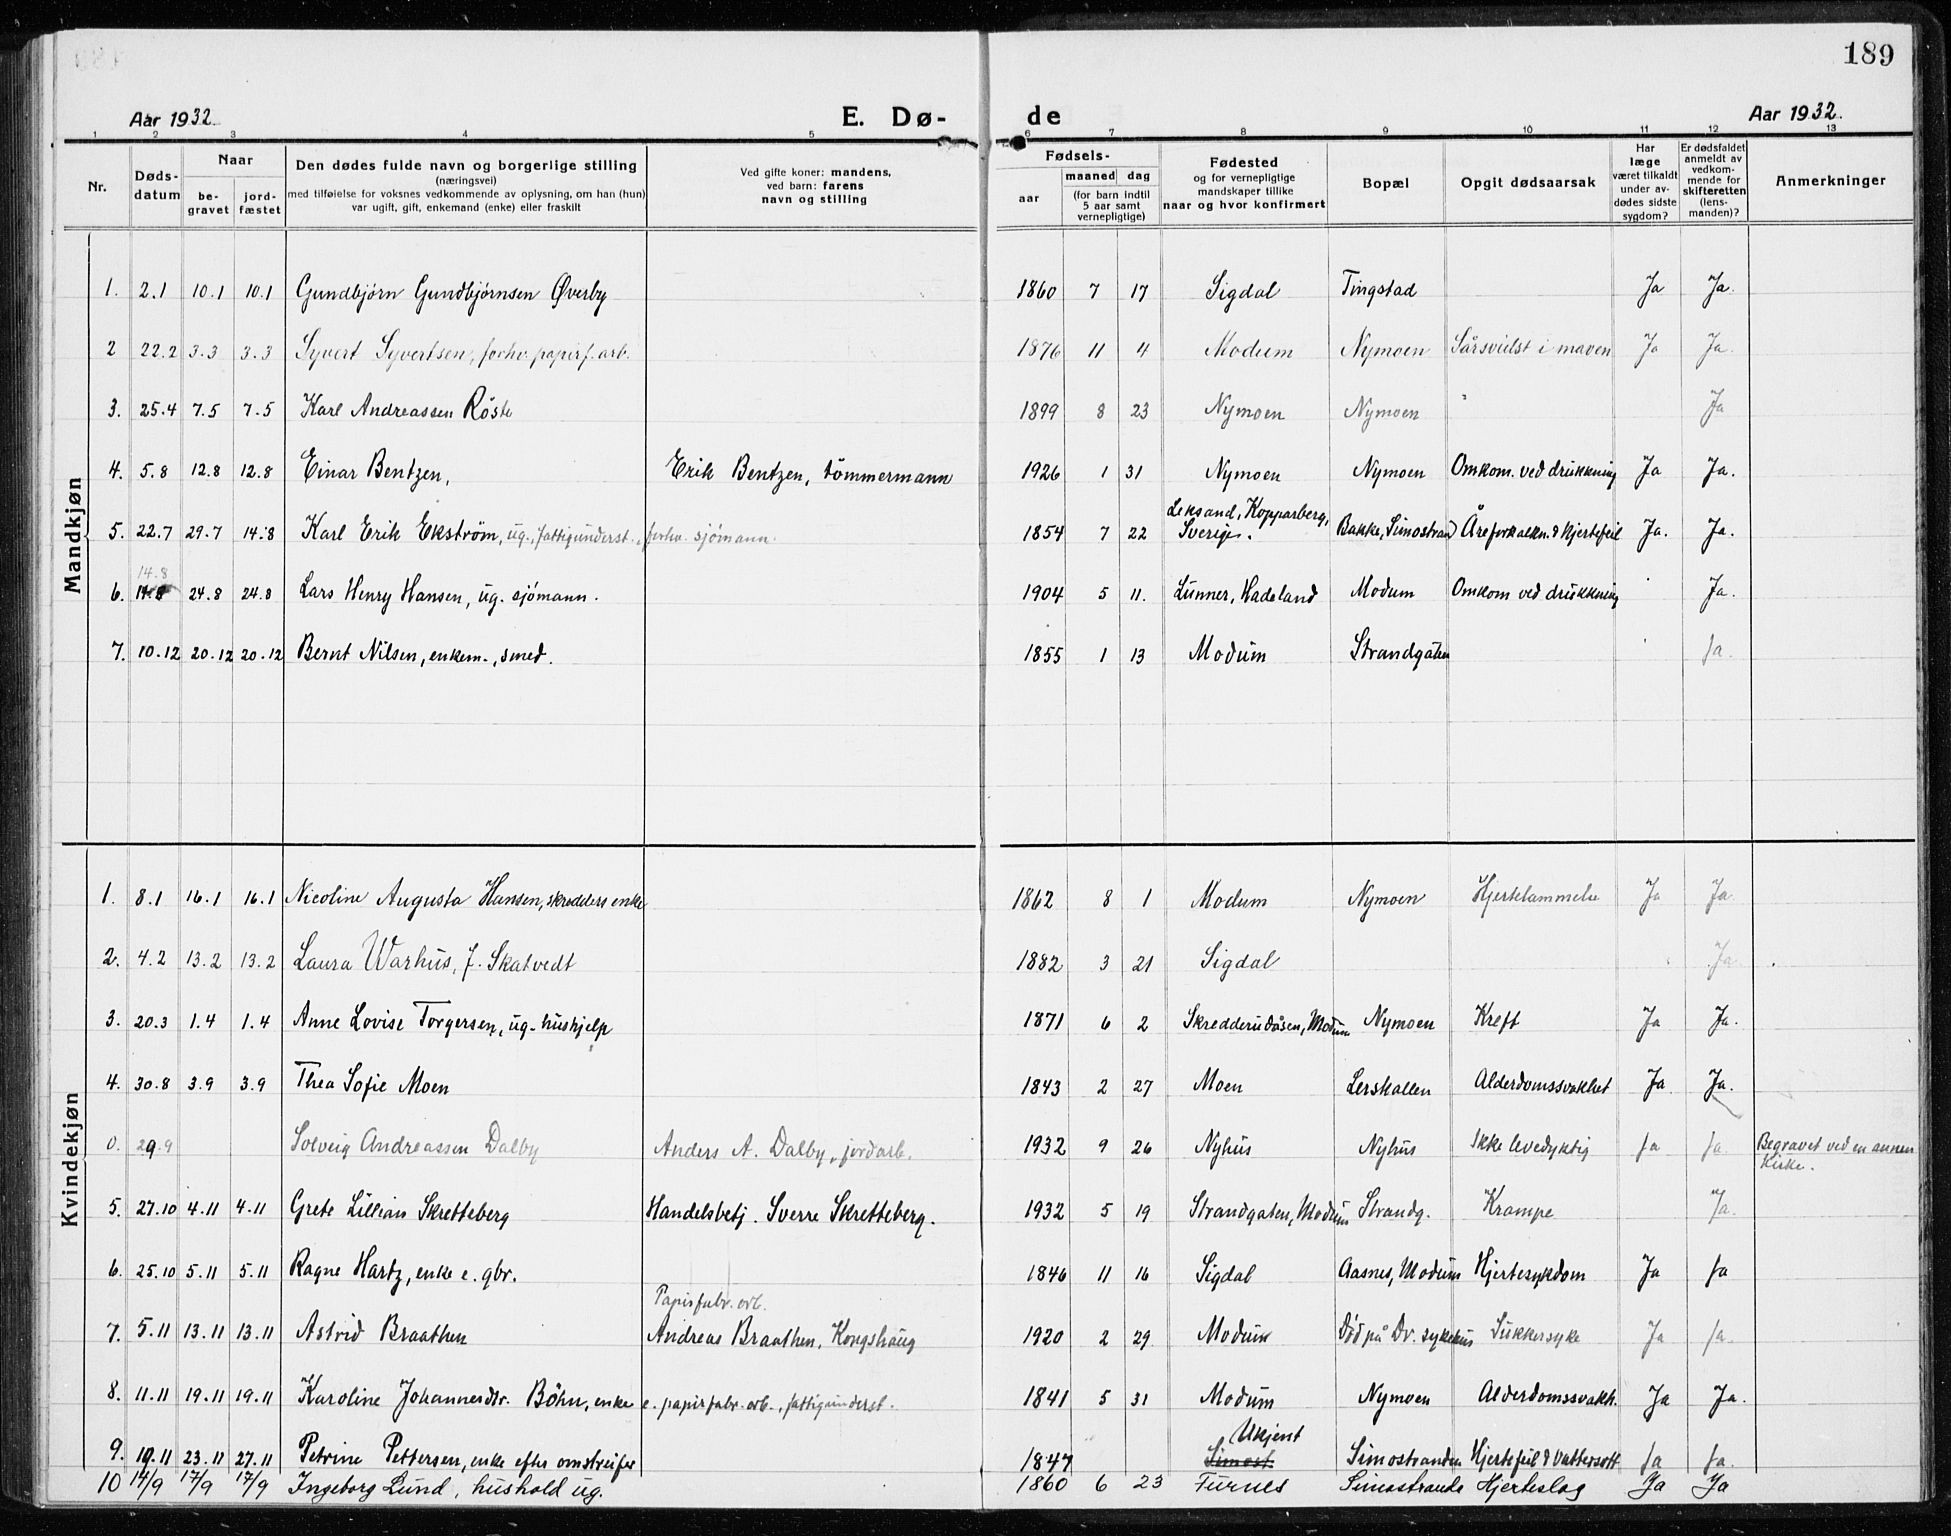 189
Aar 1932. E. Dø- de Aar 1932.
1 2 3 4 5 6 7 8 9 10 11 12 13
Nr. Døds-datum Naar be-gravet jord-fæstet Den dødes fulde navn og borgerlige stilling (næringsvei) med tilføielse for voksnes vedkommende av oplysning, om han (hun) var ugift, gift, enkemand (enke) eller fraskilt Ved gifte koner: mandens, ved barn: farens navn og stilling Fødsels- aar maaned dag (for barn indtil 5 aar samt vernepligtige) Fødested og for vernepligtige mandskaper tillike naar og hvor konfirmert Bopæl Opgit dødsaarsak Har læge været tilkaldt under av-dødes sidste sygdom? Er dødsfaldet anmeldt av vedkom-mende for skifteretten (lens-manden)? Anmerkninger
Mandkjøn
1. 2.1 10.1 10.1 Gundbjørn Gundbjørnsen Øverby 1860 7 17 Sigdal Tingstad Ja Ja.
2 22.2 3.3 3.3 Syvert Syvertsen, forhv. papirf. arb. 1876 11 4 Modum Nymoen Sårsvulst i maven Ja Ja.
3. 25.4 7.5 7.5 Karl Andreassen Röste 1899 8 23 Nymoen Nymoen " Ja
4. 5.8 12.8 12.8 Einar Bentzen, Erik Bentzen, tömmermann 1926 1 31 Nymoen Nymoen Omkom. ved drukkning Ja Ja.
5. 22.7 29.7 14.8 Karl Erik Ekström, ug., fattigunderst., forhv. sjömann. 1854 7 22 Leksand, Kopparberg, Sverige. Bakke, Simostrand Åreforkalkn. & hjertefeil Ja. Ja.
14.8
6. 14.8 24.8 24.8 Lars Henry Hansen, ug. sjómann. 1904 5 11. Lunner, Hadeland Modum Omkom ved drukkning Ja.
7. 10.12 20.12 20.12 Bernt Nilsen, enkem., smed. 1855 1 13 Modum Strandgaten Ja.
Kvindekjøn
1. 8.1 16.1 16.1 Nicoline Augusta Hansen, skredders enke 1862 8 1 Modum Nymoen Hjertelammelse Ja Ja.
2. 4.2 13.2 13.2 Laura Warhus, f. Skatvedt 1882 3 21 Sigdal Ja
3. 20.3 1.4 1.4 Anne Lovise Torgersen, ug. hushjelp 1871 6 2 Skredderudåsen, Modum Nymoen Kreft Ja Ja.
4. 30.8 3.9 3.9 Thea Sofie Moen 1843 2 27 Moen Lerskallen Alderdomssvakhet Ja Ja.
0. 29.9 Solveig Andreassen Dalby Anders A. Dalby, jordarb. 1932 9 26 Nyhus Nyhus Ikke levedyktig Ja Ja. Begravet ved en annen Kirke.
5. 27.10 4.11 4.11 Grete Lillian Skretteberg Handelsbetj. Sverre Skretteberg. 1932 5 19 Strandgaten, Modum Strandg. Krampe Ja.
6. 25.10 5.11 5.11 Ragne Hartz, enke e. gbr. 1846 11 16 Sigdal Aasnes, Modum Hjertesykdom Ja Ja
Papirfabr. arb.
7. 5.11 13.11 13.11 Astrid Braathen Andreas Braathen, Kongshaug 1920 2 29 Modum Död på Dr. sykehus Sukkersyke Ja Ja.
8. 11.11 19.11 19.11 Karoline Johannesdtr. Böhn, enke e. papirfabr. arb., fattigunderst. 1841 5 31 Modum Nymoen Alderdomssvakh. Ja Ja.
Ukjent
9. 19.11 23.11 27.11 Petrine Pettersen, enke efter omstreifer 1847 Simost. Simostranden Hjertefeil & Vattersott Ja Ja.
10 14/9 17/9 17/9 Ingeborg Lund, hushold ug. 1860 6 23 Furnes Simostranda Hjerteslag Ja Ja